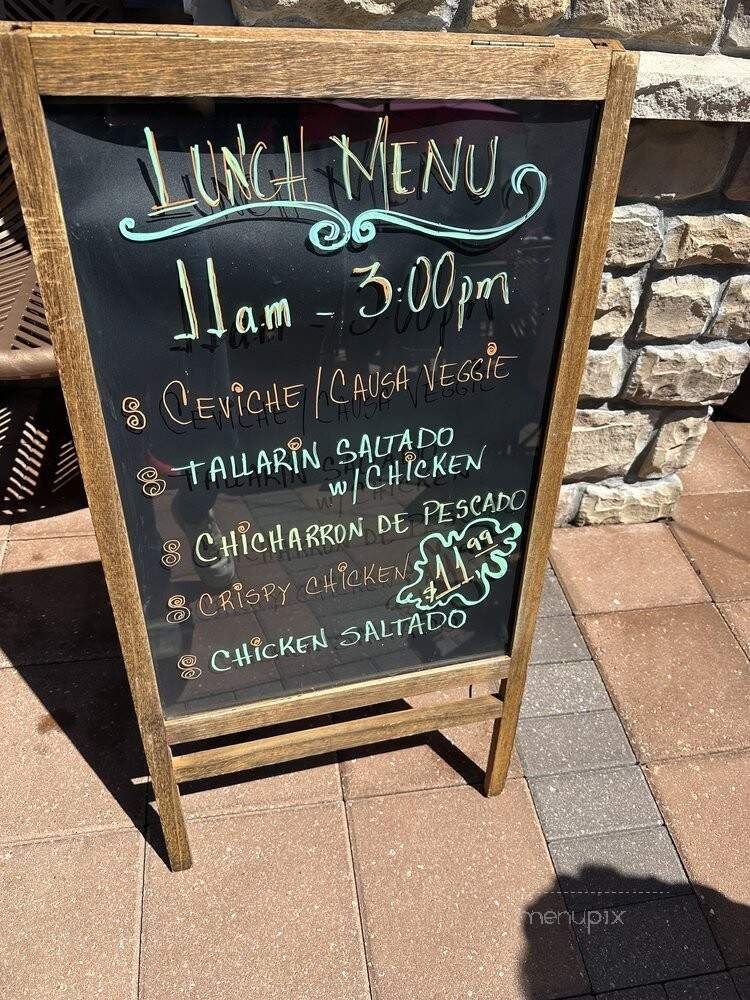 LUNCH MENU
11am - 3:00pm
CEVICHE / CAUSA VEGGIE
TALLARIN SALTADO
w/ CHICKEN
CHICHARRON DE PESCADO
CRISPY CHICKEN
$11.99
CHICKEN SALTADO
menupix